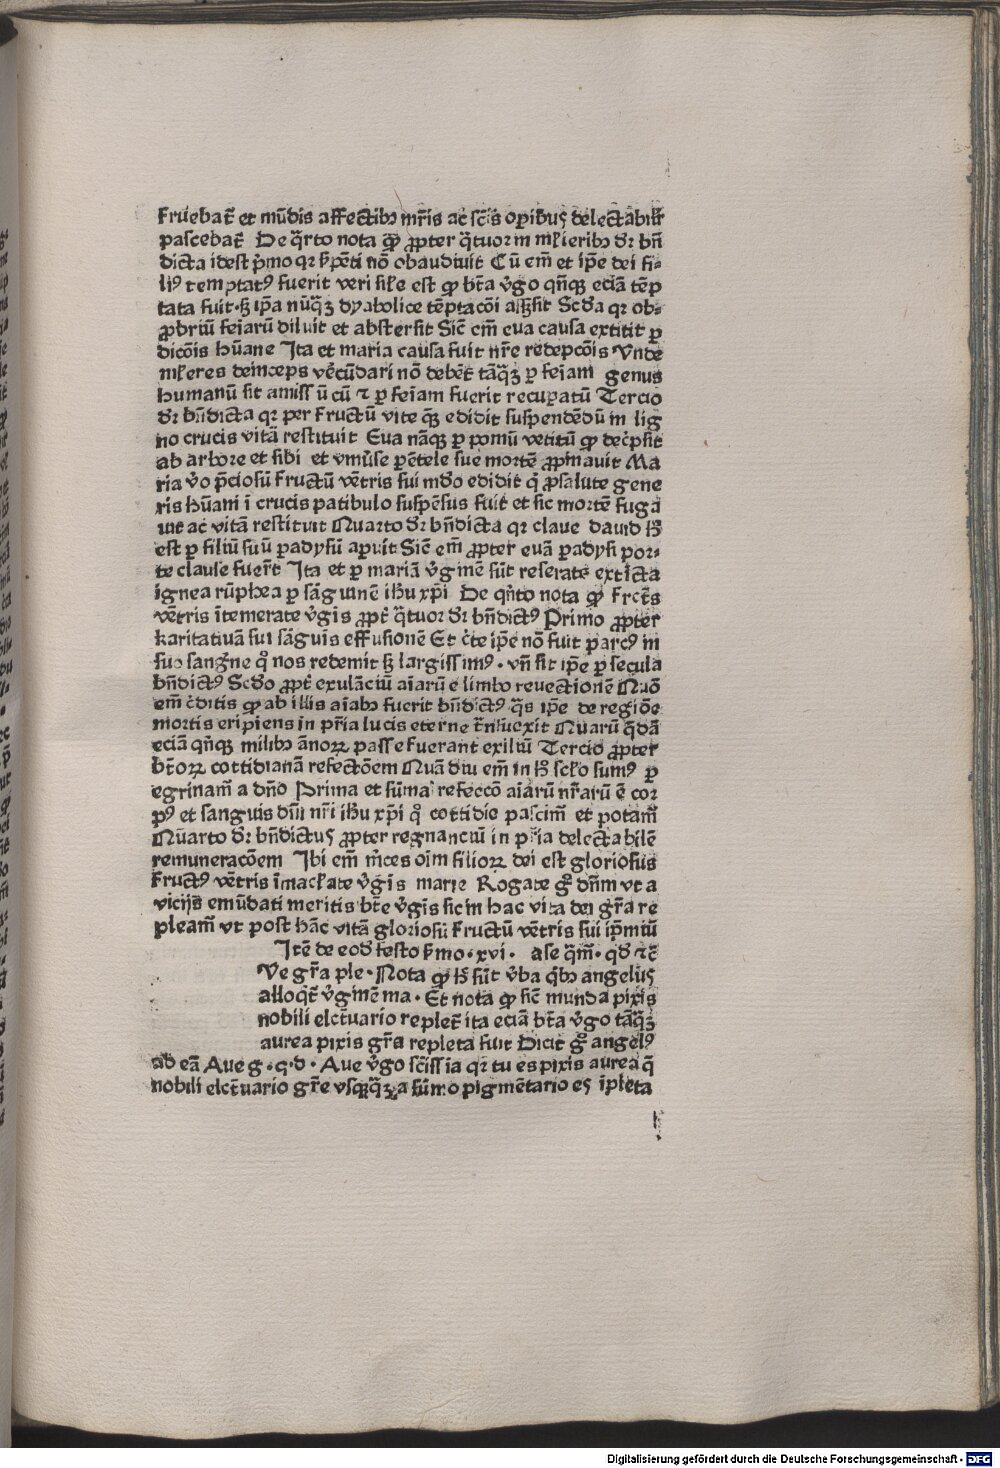 fruebat̄ et mūdis affectibꝰ mr̄is ac sc̄is opibus delectabilr̄
pascebat̄ De q̄rto nota ꝙ ꝓpter q̄tuor in ml̓ieribꝰ dr̄ bn̄
dicta idest p̄mo qr s̄pēti nō obaudiuit Cū em̄ et ip̄e dei fi-
liꝰ temptatꝰ fuerit veri sil̓e est ꝙ bt̄a v̓go qn̄qꝫ eciā tēp
tata fuit·sꝫ ip̄a nūq̄ꝫ dyabolice tēptacōi assēsit Scd̓a qr ob-
ꝓbriū feīarū diluit et abstersit Sic̄ em̄ eua causa extitit ꝑ
dicōis hūane Ita et maria causa fuit nr̄e redēpcōis Vnde
ml̓ieres deinceps vēcūdari nō debēt tāq̄ꝫ ꝑ feīam genus
humanū sit amissū cū ⁊ ꝑ feīam fuerit recuꝑatū Tercio
dr̄ bn̄dicta qr per fructū vite q̄ꝫ edidit suspendēdū in lig
no crucis vitā restituit Eua nāqꝫ ꝑ pomū vetitū ꝙ dec̓psit
ab arbore et sibi et vniūse ꝑētele sue mortē ꝓpinauit Ma
ria v̓o p̄ciosū fructū vētris sui mūdo edidit q̓ ꝓ salute gene
ris hūani ī crucis patibulo suspēsus fuit et sic mortē fuga
uit ac vitā restituit Quarto dr̄ bn̄dicta qr claue dauid hͦ
est ꝑ filiū suū ꝑadysū aꝑuit Sic̄ em̄ ꝓpter euā ꝑadysi por-
te clause fuer̄t Ita et ꝑ mariā v̓ginē sūt reserate extīcta
ignea rūphea ꝑ sāguinē ih̄u xp̄i De qn̄to nota ꝙ frct̄s
vētris ītemerate v̓gīs ꝓpt̓ q̄tuor dr̄ bn̄dictꝰ Primo ꝓpter
karitatiuā sui sāguīs effusionē Et c̓te ip̄e nō fuit parcꝰ in
suo sanḡne q̊ nos redemit sꝫ largissimꝰ · vn̄ sit ip̄e ꝑ secula
bn̄dictꝰ Scd̓o ꝓpt̓ exulāciū aīarū e limbo reuectionē Quō
em̄ c̓ditis ꝙ ab illis aīabꝰ fuerit bn̄dictꝰ q̄s ip̄e de regiōe
mortis eripiens in pr̄ia lucis eterne trāsuexit Quarū q̄dā
eciā qn̄qꝫ milibꝰ ānoꝝ passe fuerant exiliū Tercio ꝓpter
bt̄oꝝ cottidianā refectōem Quādiu em̄ in hͦ scl̓o sumꝰ ꝑ
egrinam̄ a dn̄o Prima et sūma refeccō aīarū nr̄arū ē cor
pꝰ et sanguis dn̄i nr̄i ih̄u xp̄i q̊ cottidie pascim̄ et potam̄
Quarto dr̄ bn̄dictus ꝓpter regnanciū in pr̄ia delectabilē
remuneracōem Ibi em̄ m̄ces oīm filioꝝ dei est gloriosus
fructꝰ vētris īmacl̓ate v̓gīs marie Rogate g̊ dn̄m vt a
vicijs emūdati meritis bt̄e v̓gīs sic in hac vita dei gr̄a re
pleam̄ vt post hāc vitā gloriosū fructū vētris sui ip̄m tiū
Itē de eod̄ festo s̄mo·xvi· ase q̄m̄·qd̄ ⁊c̄
Ve gr̄a ple·Nota ꝙ hͦ sūt v̓ba q̄bꝰ angelus
alloq̄t̄ v̓ginē ma·Et nota ꝙ sic̄ munda pixis
nobili elct̄uario replet̄ ita eciā bt̄a v̓go tāq̄ꝫ
aurea pixis gr̄a repleta fuit Dicit g̊ angelꝰ
ad eā Aue g·q·d·Aue v̓go sc̄issīa qr tu es pixis aurea q̄
nobili elct̄uario gr̄e vsqꝫq̄ꝫ a sūmo pigmētario es īpleta
Digitalisierung gefördert durch die Deutsche Forschungsgemeinschaft - DFG